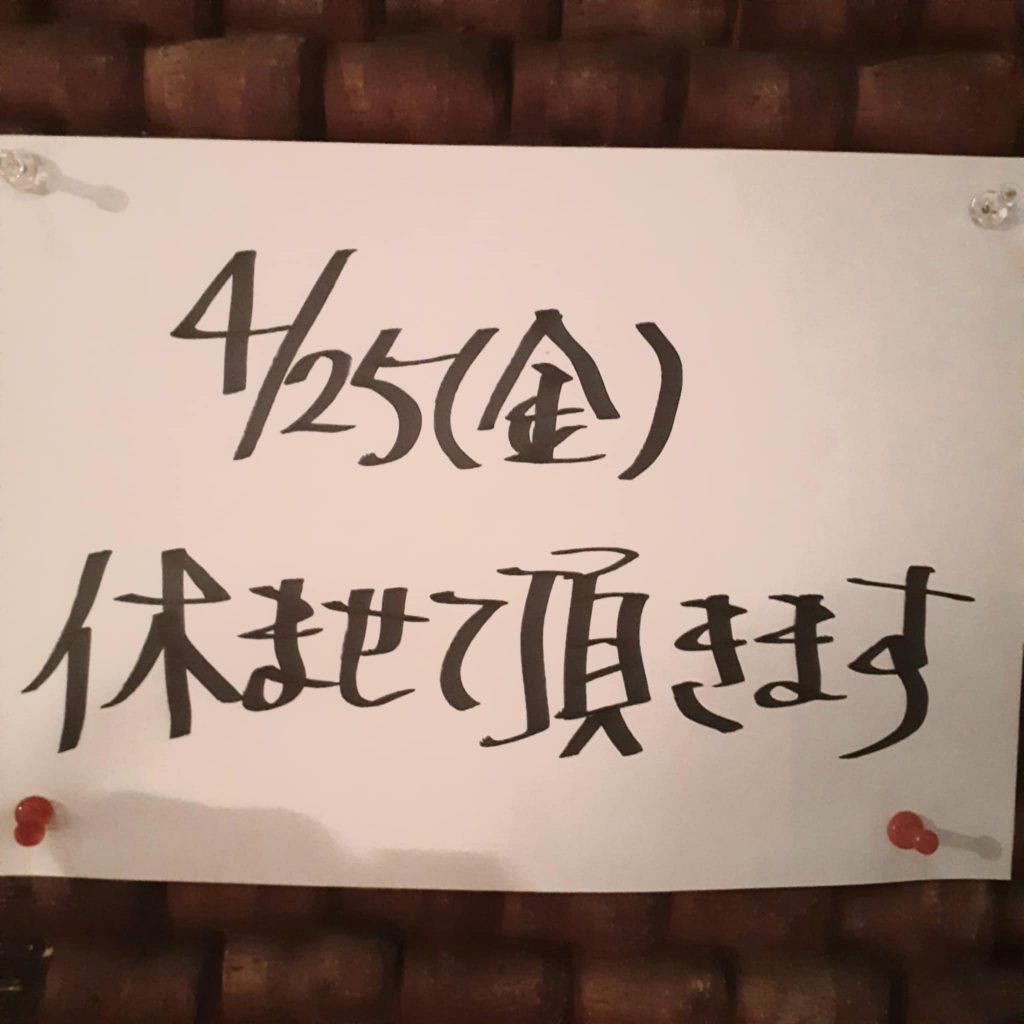 4/25(金)
休ませて頂きます